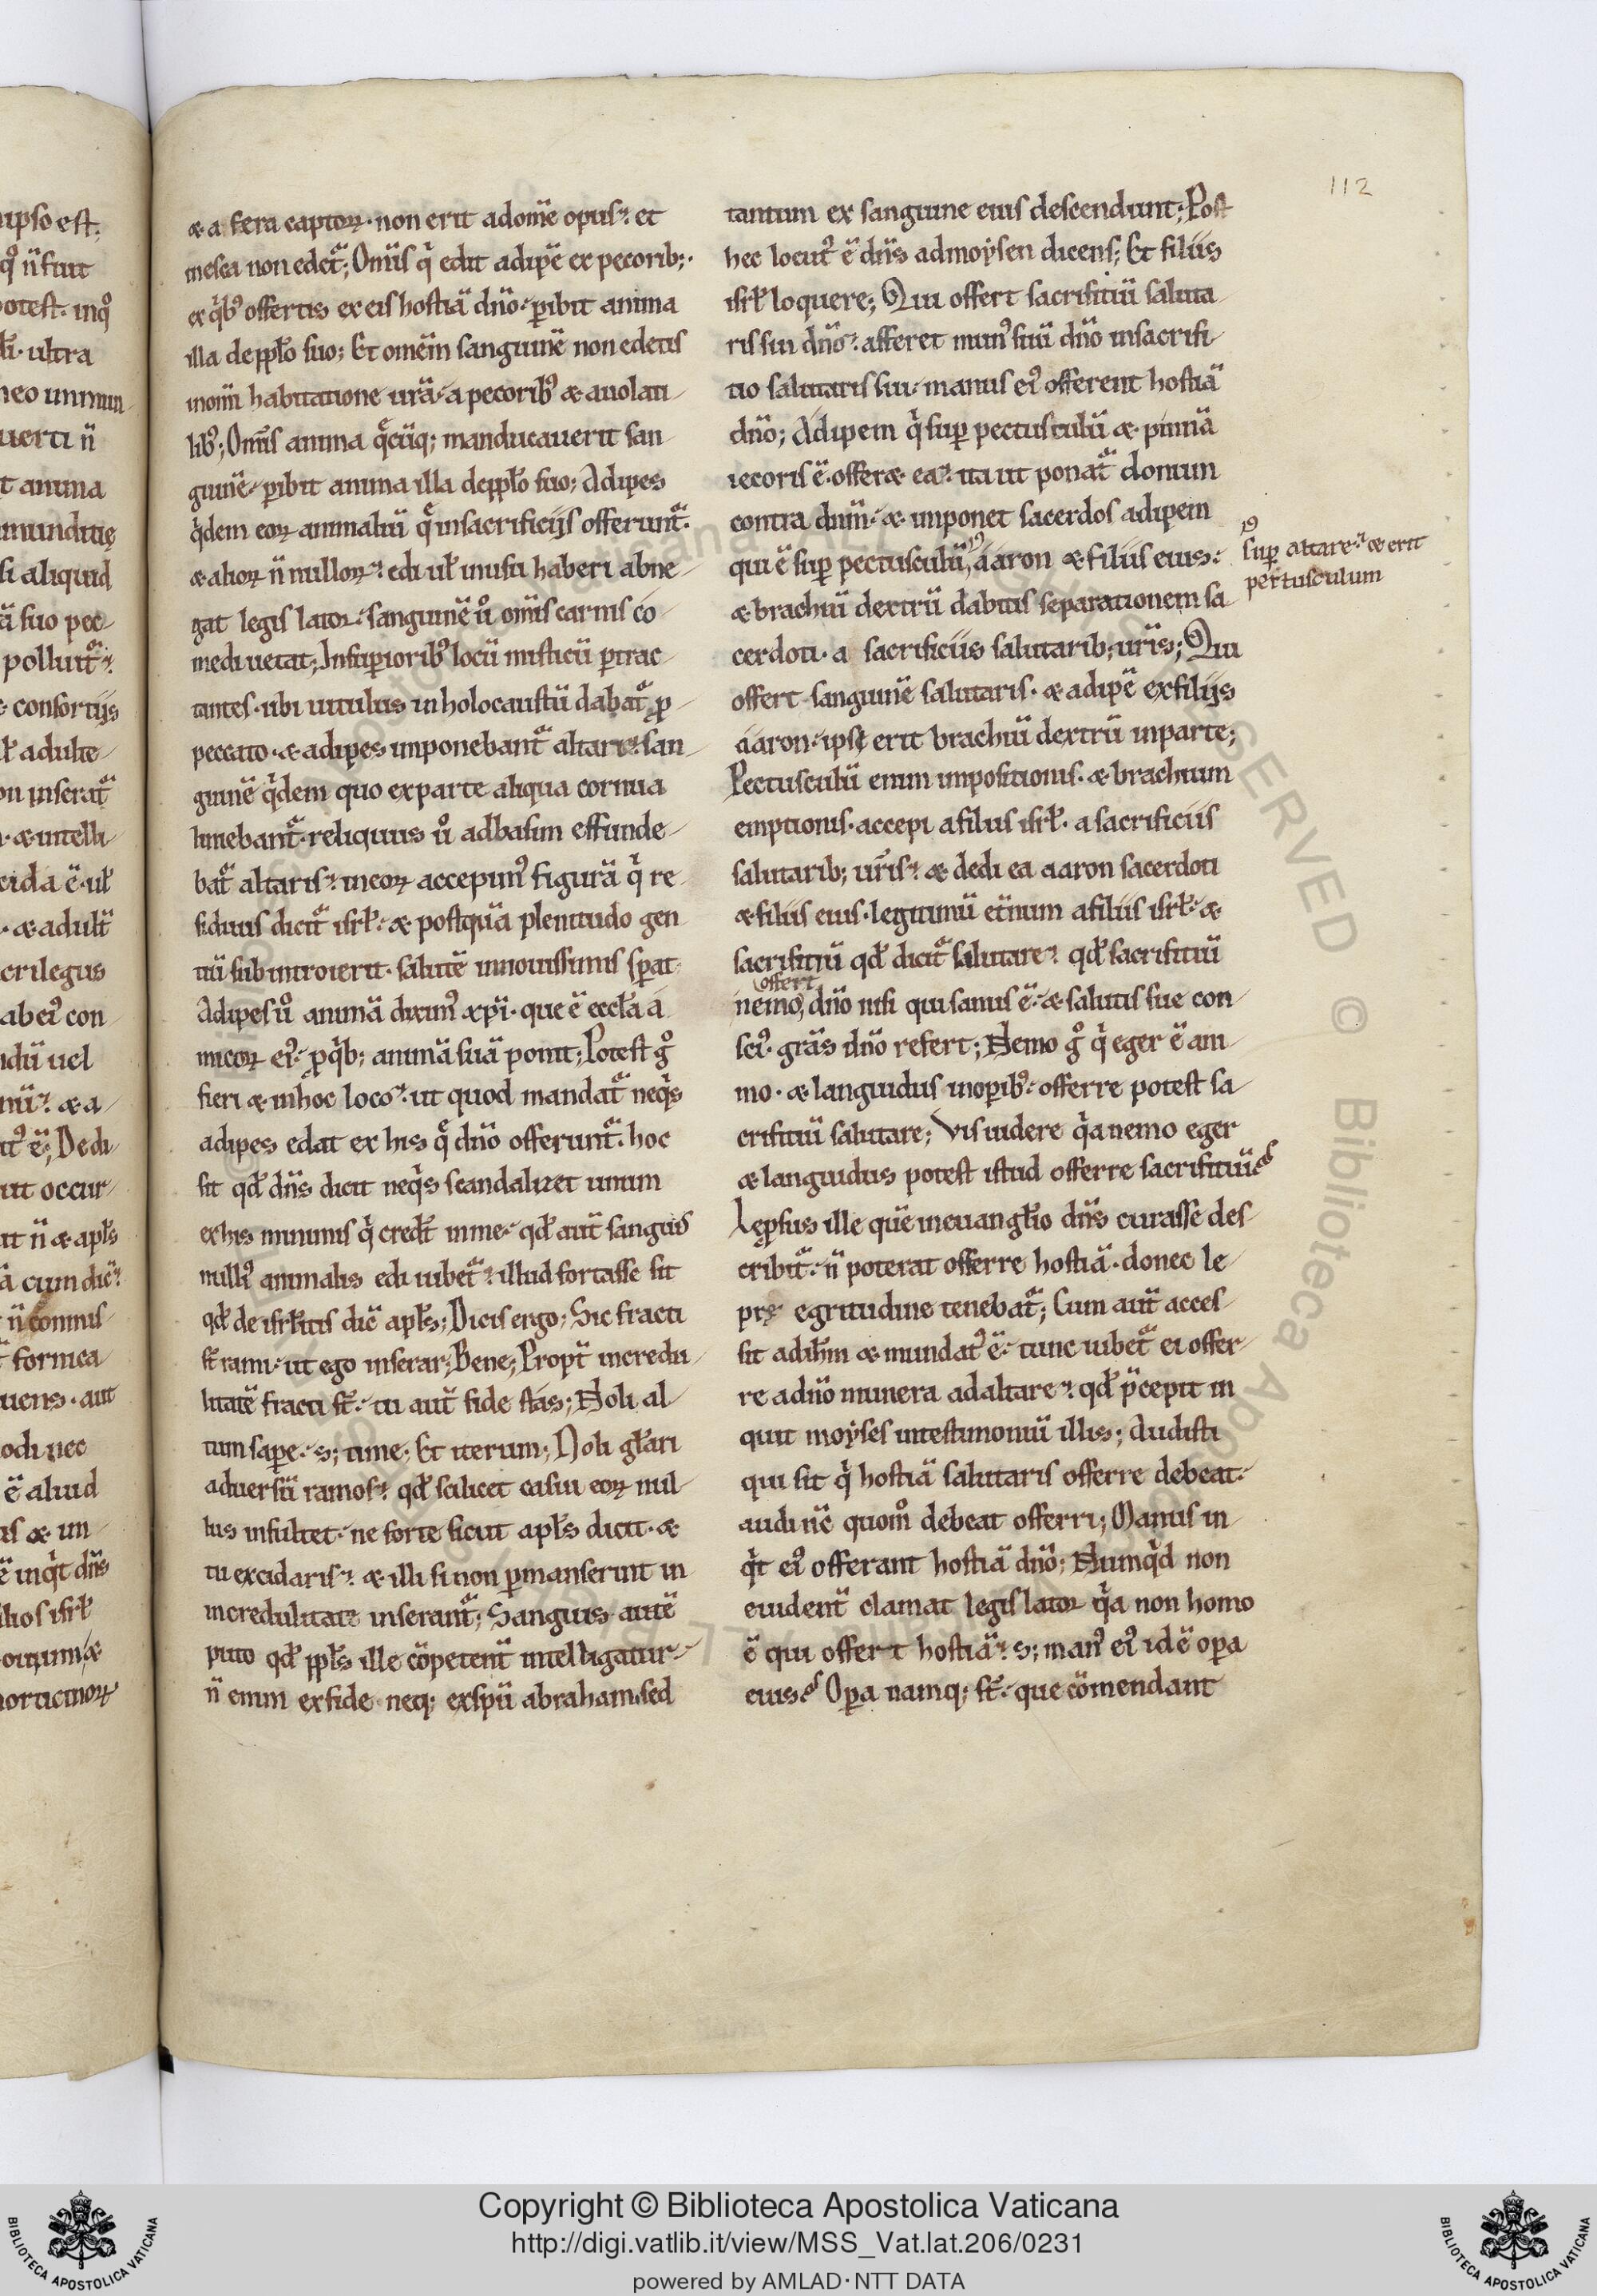 112
& a fera captoꝝ· non erit adom̄e opus⁊ et
inesca non edet᷑; Om̄is q̇ edit adipē ex pecorib;·
ex q̇bꝰ offertis ex eis hostiā dn̄o· ꝑibit anima
illa de pp̄lo suo; Et omēm sanguinē non edetis
inom̄i habitatione ur̄a· a pecoribꝰ & auolati
libꝰ; Om̄is anima q̄cūq; manducauerit san
guinē· ꝑibit anima illa de pp̄lo suo; Adipes
q̇dem eoꝝ animaliū q̄ insacrificijs offerunt᷑·
& alioꝝ n̄ nulloꝝ· edi ul̄ inusu haberi abne
gat legis lator· sanguinē ůo om̄is carnis co
medi uetat; Insuꝑioribꝰ locū misticū ꝑtrac
tantes· ubi uitulus in holocaustū dabat᷑ ꝓ
peccato· & adipes imponebant᷑ altari· san
guinē q̇dem quo ex parte aliqua cornua
linebant᷑· reliquus ůo ad basim effunde
bat᷑ altaris· ineoꝝ accepimꝰ figurā q̇ re
siduus dicit᷑ isrl̄· & postquā plenitudo gen
tiū subintroierit· salutē innouissimis sꝑat
Adipes ůo animā diximꝰ xp̄i· que ē eccl̄a a
micoꝝ eiꝰ· ꝓ q̇b; animā suā ponit; Potest g̊
fieri & inhoc loco· ut quod mandat᷑ neq̇s
adipes edat ex his q̄ dn̄o offerunt᷑· hoc
sit qd̄ dn̄s dicit neq̇s scandalizet unum
ex his minimis q̇ credt̄ inme· qd̄ aut̄ sanguis
nulliꝰ animalis edi iubet᷑· illud fortasse sit
qd̄ de isrl̄itis dic̄ apl̄s; Dicis ergo; Sic fracti
st̄ rami· ut ego inserar; Bene; Propt̄ incredu
litatē fracti st̄· tu aut̄ fide stas; Noli al
tum saꝑe· s; time; Et iterum; Noli gl̄ari
aduersū ramos· qd̄ scilicet casui eoꝝ nul
lus insultet· ne forte sicut apl̄s dicit· &
tu excidaris· & illi si non ꝑmanserint in
incredulitate inserant᷑; Sanguis autē
puto qd̄ pp̄ls ille cōpetent̄ intelligatur·
n̄ enim ex fide neq; ex spū abraham· sed
tantum ex sanguine eius descendunt; Post
hec locutꝰ ē dn̄s ad moysen dicens; Et filiis
isrl̄ loquere; Qui offert sacrifitiū saluta
ris sui dn̄o· afferet munꝰ suū dn̄o insacrifi
tio salutaris sui· manus eiꝰ offerent hostiā
dn̄o; Adipem q̇ suꝑ pectusculū & pinnā
iecoris ē· offer& ea· ita ut ponat᷑ domun
contra dnm̄· & imponet sacerdos adipem
qui ē suꝑ pectusculū, aaron & filiis eius·
suꝑ altare· & erit
pectusculum
& brachiū dextrū dabitis separationem sa
cerdoti· a sacrificiis salutarib; ur̄is; Qui
offert sanguinē salutaris· & adipē ex filijs
aaron· ipsi erit brachiū dextrū inparte;
Pectusculū enim impositionis· & brachium
emptionis· accepi a filiis isrl̄· a sacrificiis
salutarib; ur̄is· & dedi ea aaron sacerdoti
& filiis eius· legitimū et̄num a filiis isrl̄· &
sacrifitiū qd̄ dicit᷑ salutare· qd̄ sacrifitiū
offert
nemo, dn̄o nisi qui sanus ē· & salutis sue con
sciꝰ· grās dn̄o refert; Nemo g̊ q̇ eger ē ani
mo· & languidus inoꝑibꝰ· offerre potest sa
crifitiū salutare; Vis uidere q̇a nemo eger
& languidus potest istud offerre sacrifitiū
Lepsus ille quē ineuangl̄io dn̄s curasse des
cribit᷑· n̄ poterat offerre hostiā· donec le
prę egritudine tenebat᷑; Cum aut̄ acces
sit ad ihm̄ & mundatꝰ ē· tunc iubet᷑ ei offer
re a dn̄o munera ad altare· qd̄ p̄cepit in
quit moyses intestimoniū illis; Audisti
qui sit q̇ hostiā salutaris offerre debeat·
audi nc̄ quom̊ debeat offerri; Manus in
q̇t eiꝰ offerant hostiā dn̄o; Numq̇d non
euident̄ clamat legis lator q̇a non homo
ē qui offert hostiā· s; manꝰ eiꝰ id ē oꝑa
eius Oꝑa namq; st̄· que cōmendant
Copyright © Biblioteca Apostolica Vaticana
http://digi.vatlib.it/view/MSS_Vat.lat.206/0231
powered by AMLAD·NTT DATA